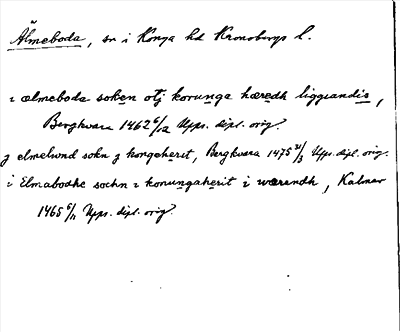 Älmeboda, sn i Konga hd Kronobergs l.
ı ælmeboda soken otj konunga hæredh liggiandis,
Bergkvara 1462 6/12 Upps. dipl. orig.
j elmelund sokn j kongeheret, Bergkvara 1475 31/3 Upps. dipl. orig.
i Elmabodhe sochn ı konungaherit i wærendh, Kalmar
1465 6/11 Upps. dipl. orig.